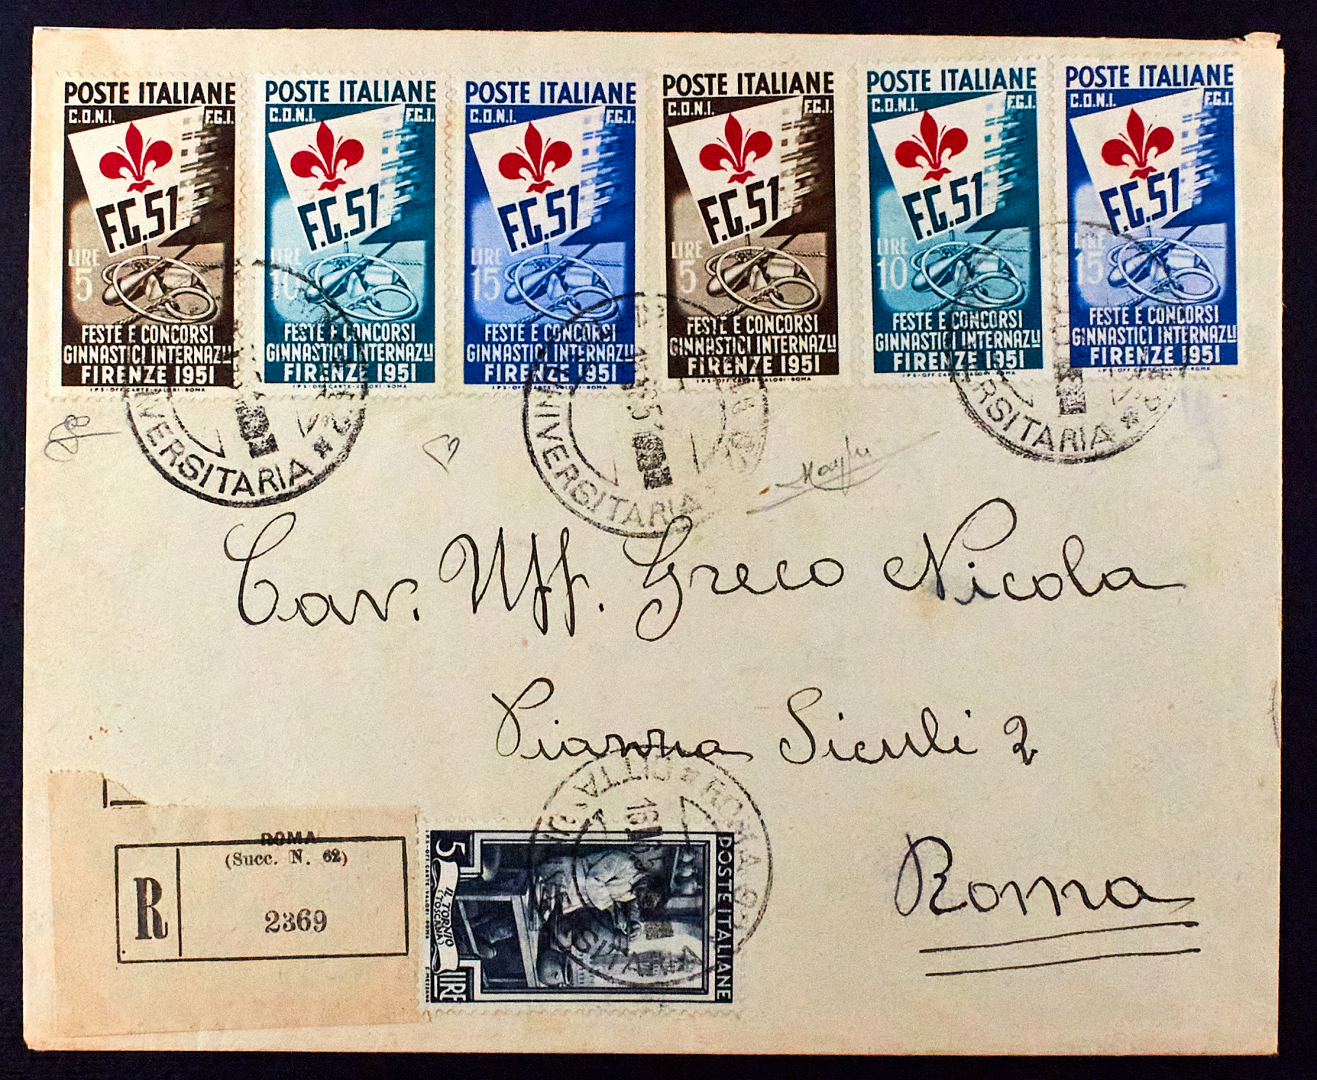 POSTE ITALIANE
C.O.N.I. F.G.I.
F.G.51
LIRE
5
FESTE E CONCORSI
GINNASTICI INTERNAZLI
FIRENZE 1951
I.P.S.-OFF. CARTE-VALORI-ROMA
POSTE ITALIANE
C.O.N.I. F.G.I.
F.G.51
LIRE
10
FESTE E CONCORSI
GINNASTICI INTERNAZLI
FIRENZE 1951
I.P.S.-OFF. CARTE-VALORI-ROMA
POSTE ITALIANE
C.O.N.I. F.G.I.
F.G.51
LIRE
15
FESTE E CONCORSI
GINNASTICI INTERNAZLI
FIRENZE 1951
I.P.S.-OFF. CARTE-VALORI-ROMA
POSTE ITALIANE
C.O.N.I. F.G.I.
F.G.51
LIRE
5
FESTE E CONCORSI
GINNASTICI INTERNAZLI
FIRENZE 1951
I.P.S.-OFF. CARTE-VALORI-ROMA
POSTE ITALIANE
C.O.N.I. F.G.I.
F.G.51
LIRE
10
FESTE E CONCORSI
GINNASTICI INTERNAZLI
FIRENZE 1951
I.P.S.-OFF. CARTE-VALORI-ROMA
POSTE ITALIANE
C.O.N.I. F.G.I.
F.G.51
LIRE
15
FESTE E CONCORSI
GINNASTICI INTERNAZLI
FIRENZE 1951
I.P.S.-OFF. CARTE-VALORI-ROMA
VERSITARIA
NIVERSITARIA
ERSITARIA
Cav. Uff. Greco Nicola
Piazza Siculi 2
Roma
ROMA
(Succ. N. 62)
R
2369
5
LIRE
IL TORNIO
(TOSCANA)
POSTE ITALIANE
ROMA
CITTA